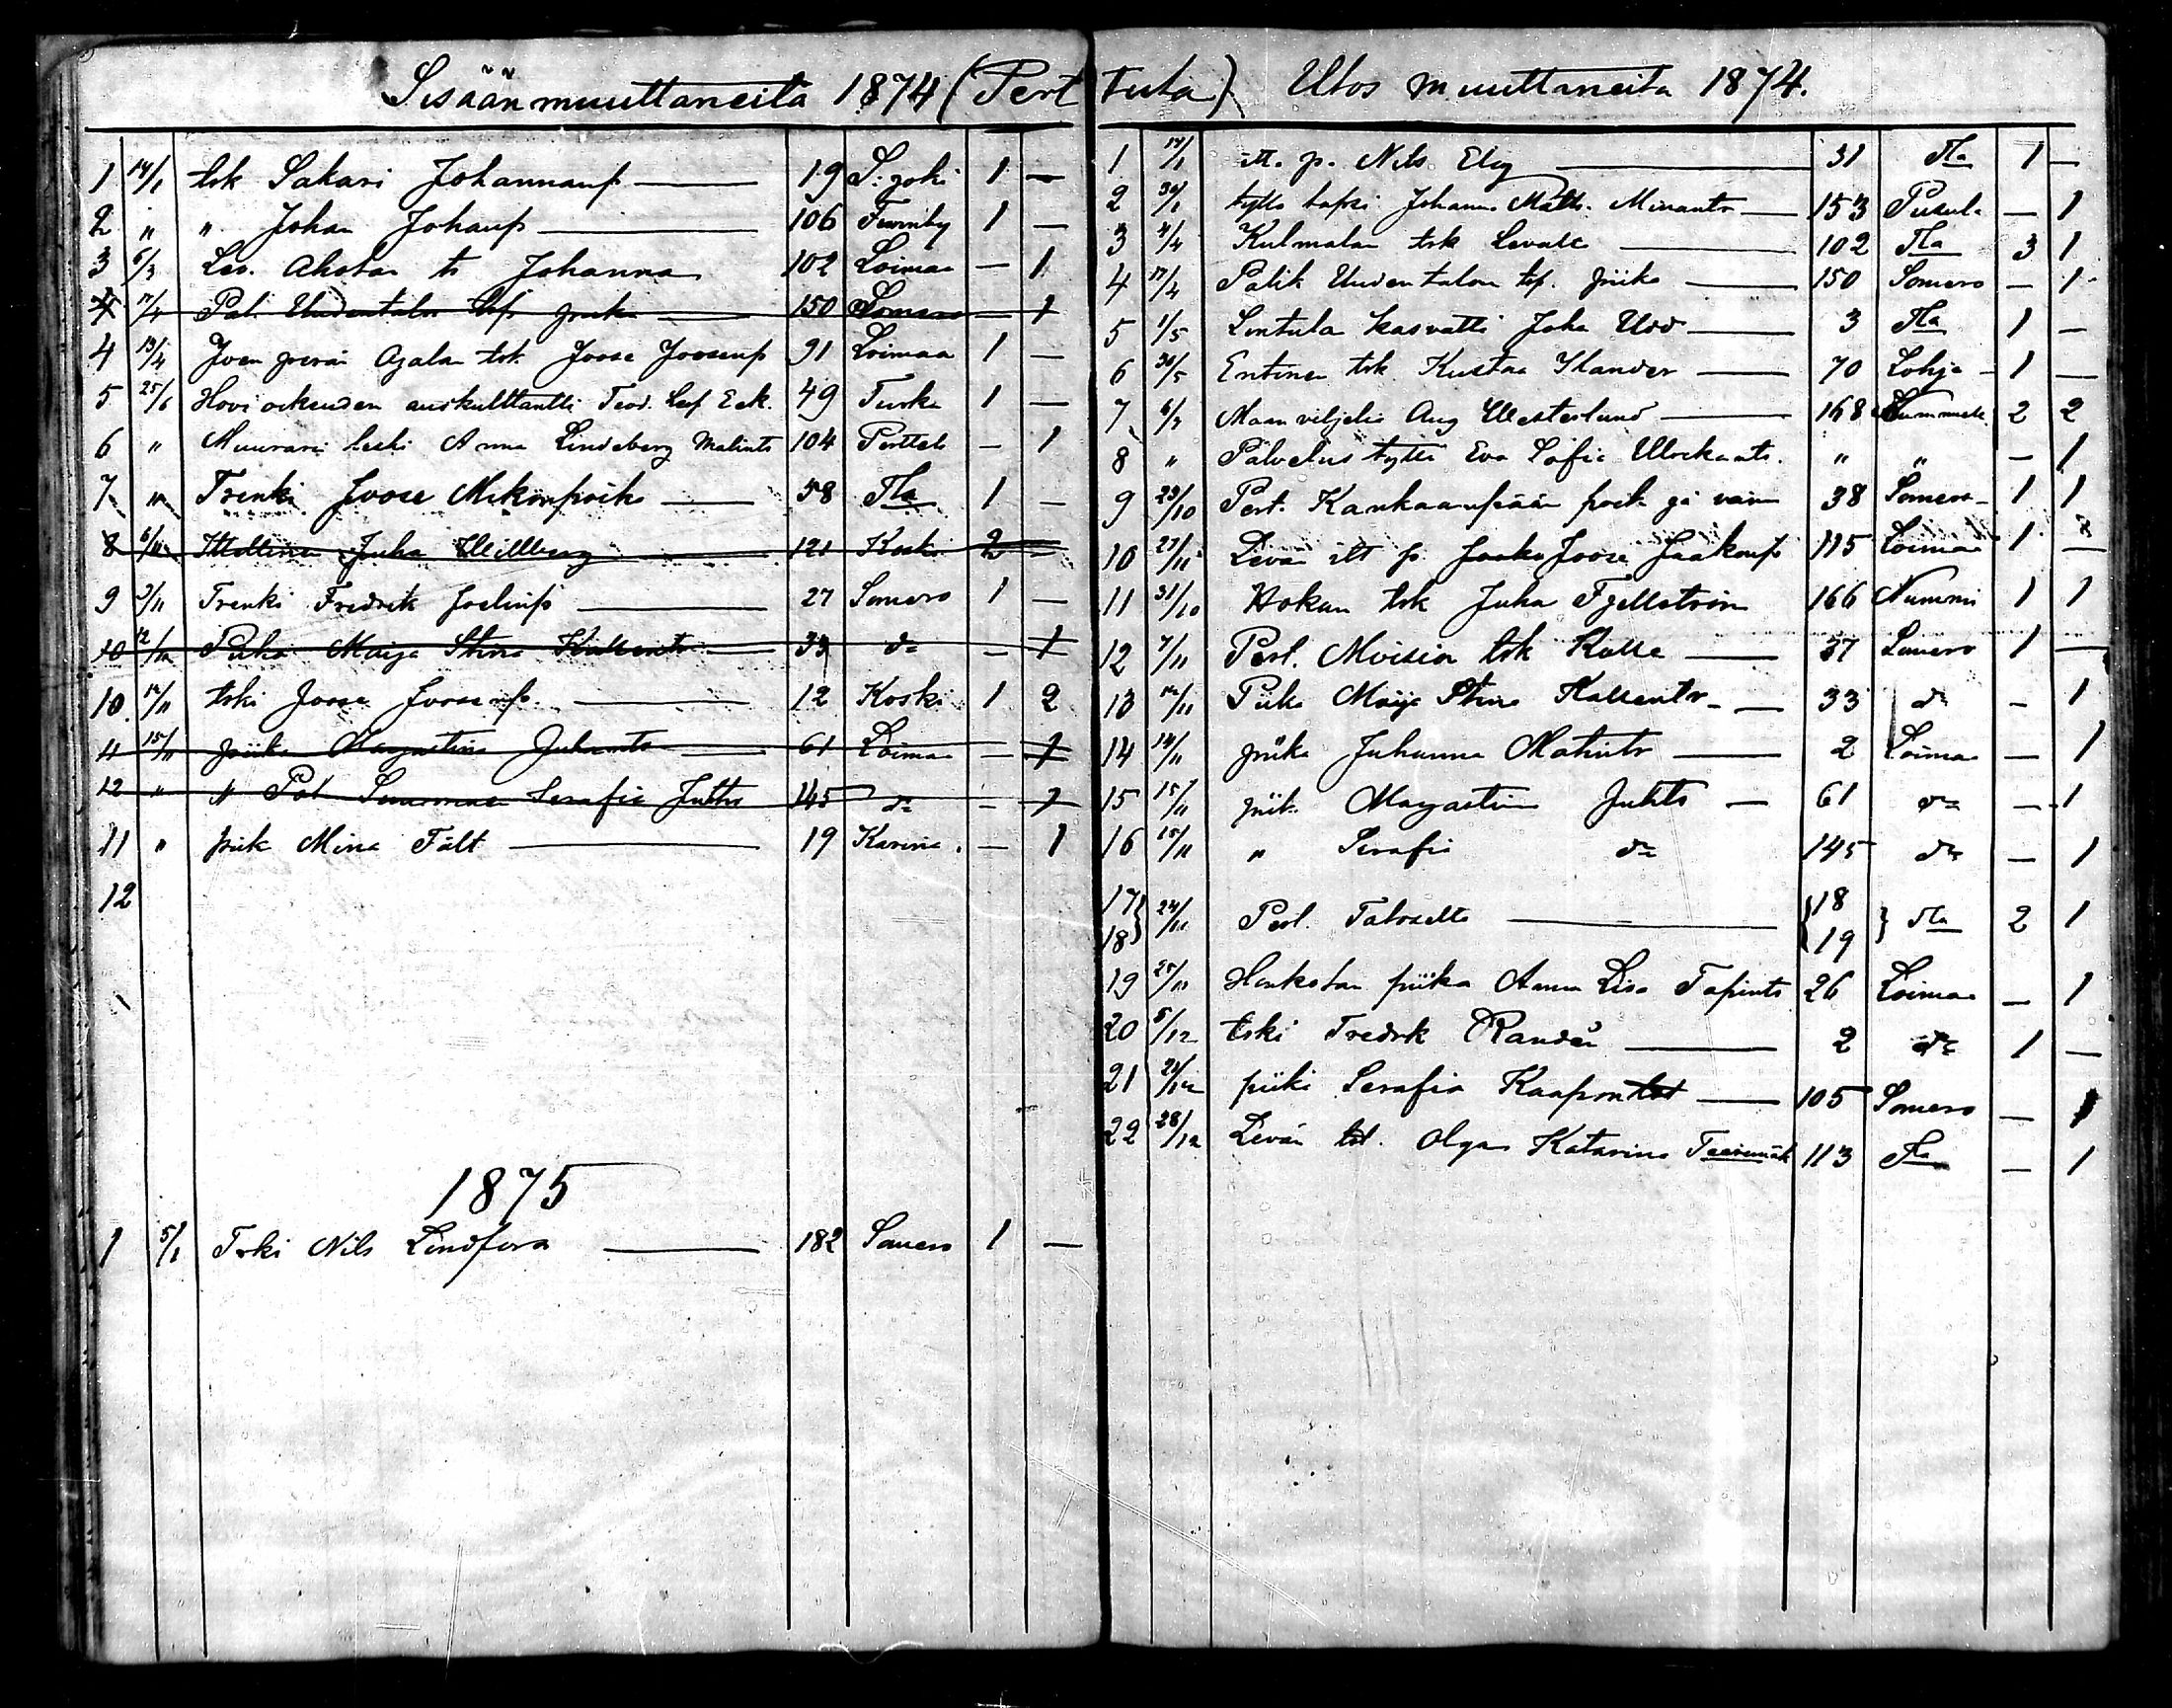 Sisäänmuuttaneita 1874 (Perttula) Ulos muuttaneita 1874.
1 14/1 trk Sakari Johannanp 19 S:joki 1 —
2 " " Johan Johanp 106 1 —
3 6/3 Lev. Ahotan tr Johanna 102 Loimaa — 1
4 17/4 Pal. Uudentalon piika 150 Somero — 1
4 19/4 Ajalan trk Joose Joosenp 91 Loimaa 1 —
5 25/6 Hovioikeuden auskulttantti Teod. Eek. 49 Turku 1 —
6 " Muurari leski Anna Lindeberg Matints 104 Perttel — 1
7 " Trenki Joose Mikonpoika 58 Tla 1 —
8 6/11 Juha Willberg 121 Koski 2 —
9 9/11 Trenki Fredrik 27 Somero 1 —
10 12/11 Piika Maija Stina Kallentr 33 do — 1
10 14/11 trki Joose Joosenp 12 Koski 1 2
11 15/11 piika Margastina Juhants 61 Loimaa — 1
12 " " Pal Serafia Juhtr 145 do — 1
11 " piik Mina Fält 19 Karina. — 1
12
1875
1 5/1 Trki Nils Lindfors 182 Somero 1 —
1 14/1 itt. p. Nils 31 Tla 1 —
2 30/1 tyttö lapsi Johanna Matts. 153 Pusul. — 1
3 4/4 Kulmalan trk 102 Tla 3 1
4 17/4 Palik Uudentalon piika 150 Somero — 1
5 1/5 Lintula kasvatti Juha Udd 3 Tla 1 —
6 30/5 Entinen trk Kustaa Ilander 70 Lohja 1 —
7 6/7 Maanviljeliä Aug Westerlund 168 2 2
8 " Palvelustyttö Eva Sofia " " — 1
9 23/10 Pert. Kankaanpään poik ja vaim 38 Somero 1 1
10 27/11 Levän itt p. Jaako Joose Jaakonp 115 Loimaa 1 —
11 31/10 Hokan trk Juha Fjellström 166 Nummi 1 1
12 7/11 Pert. Moision trk Kalle 37 Somero 1 —
13 12/11 Piika Maija Stina Kallentr 33 do — 1
14 14/11 piika Juhanna Matintr 2 Loimaa — 1
15 15/11 piik. Margastina Juhts 61 do — 1
16 15/11 " Serafia do 145 do — 1
17 18 24/11 Pert. Taloselta 18 19 Tla 2 1
19 25/11 piika Anna Lisa Tapints 26 Loimaa — 1
20 5/12 trki Fredrk Randén 2 do 1 —
21 21/12 piika Serafia 105 Somero — 1
22 28/12 Levän Olga Katarina 113 Tla — 1